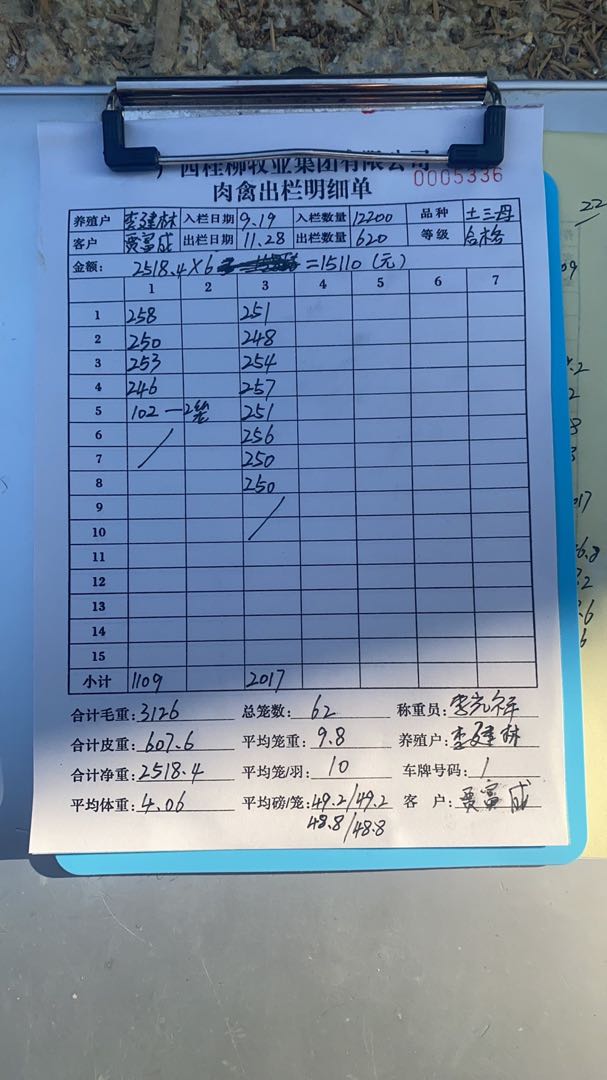 西桂柳牧业集团有限公司
肉禽出栏明细单
0005336
养殖户 李建林 入栏日期 9.19 入栏数量 12200 品种 土三母
客户 贾富成 出栏日期 11.28 出栏数量 620 等级 合格
金额: 2518.4×6 =15110(元)
1 2 3 4 5 6 7
1 258 251
2 250 248
3 253 254
4 246 257
5 102 — 2笼 251
6 256
7 250
8 250
9
10
11
12
13
14
15
小计 1109 2017
合计毛重: 3126 总笼数: 62 称重员: 李光祥
合计皮重: 607.6 平均笼重: 9.8 养殖户: 李建林
合计净重: 2518.4 平均笼/羽: 10 车牌号码: 1
平均体重: 4.06 平均磅/笼: 49.2/49.2 客 户: 贾富成
48.8/48.8
22